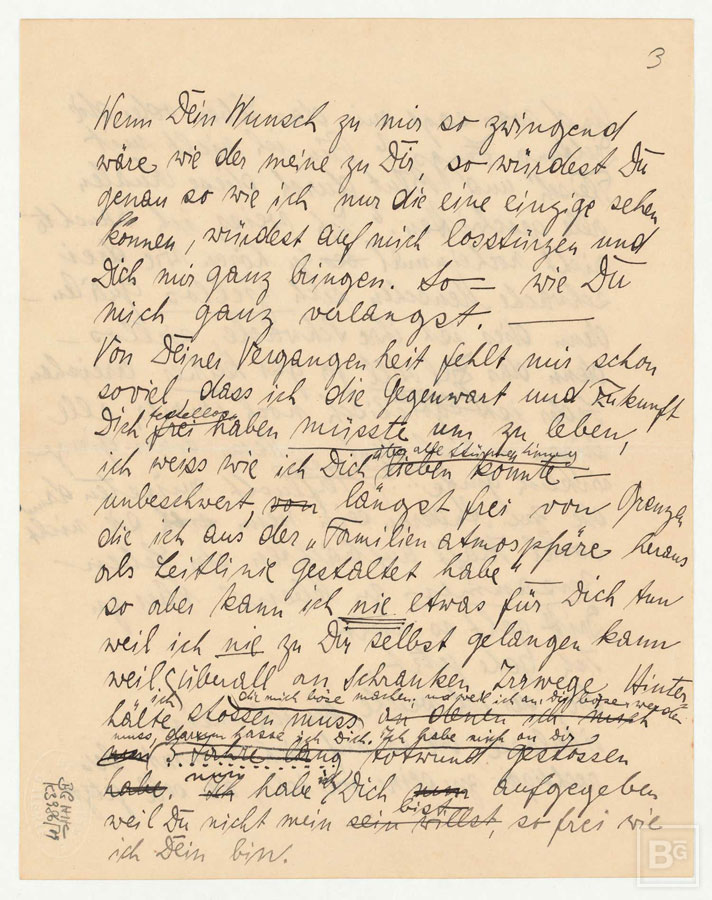 3
Wenn Dein Wunsch zu mir so zwingend
wäre wie der meine zu Dir, so würdest Du
genau so wie ich nur die eine einzige sehen
können, würdest auf mich losstürzen und
Dich mir ganz bringen. So — wie Du
mich ganz verlangst. —
Von Deiner Vergangenheit fehlt mir schon
soviel, dass ich die Gegenwart und Zukunft
Dich frei haben müsste um zu leben,
über alle Stürme hinweg
ich weiss wie ich Dich lieben könnte —
unbeschwert, von längst frei von Grenzen
die ich aus der „Familienatmosphäre heraus
als Leitlinie gestaltet habe" —
so aber kann ich nie etwas für Dich tun
weil ich nie zu Dir selbst gelangen kann
weil ich überall an Schranken Irrwege Hinter-
die mich böse machen, und weil ich an Dir böse werden
hälte stossen muss an denen ich mich
muss, darum hasse ich Dich. Ich habe mich an Dir
5 Jahre lang totwund gestossen
habe. nun ich habe ich Dich nun aufgegeben
bist
weil Du nicht mein sein willst, so frei wie
ich Dein bin.
BG HHC
K 3986/79
BG